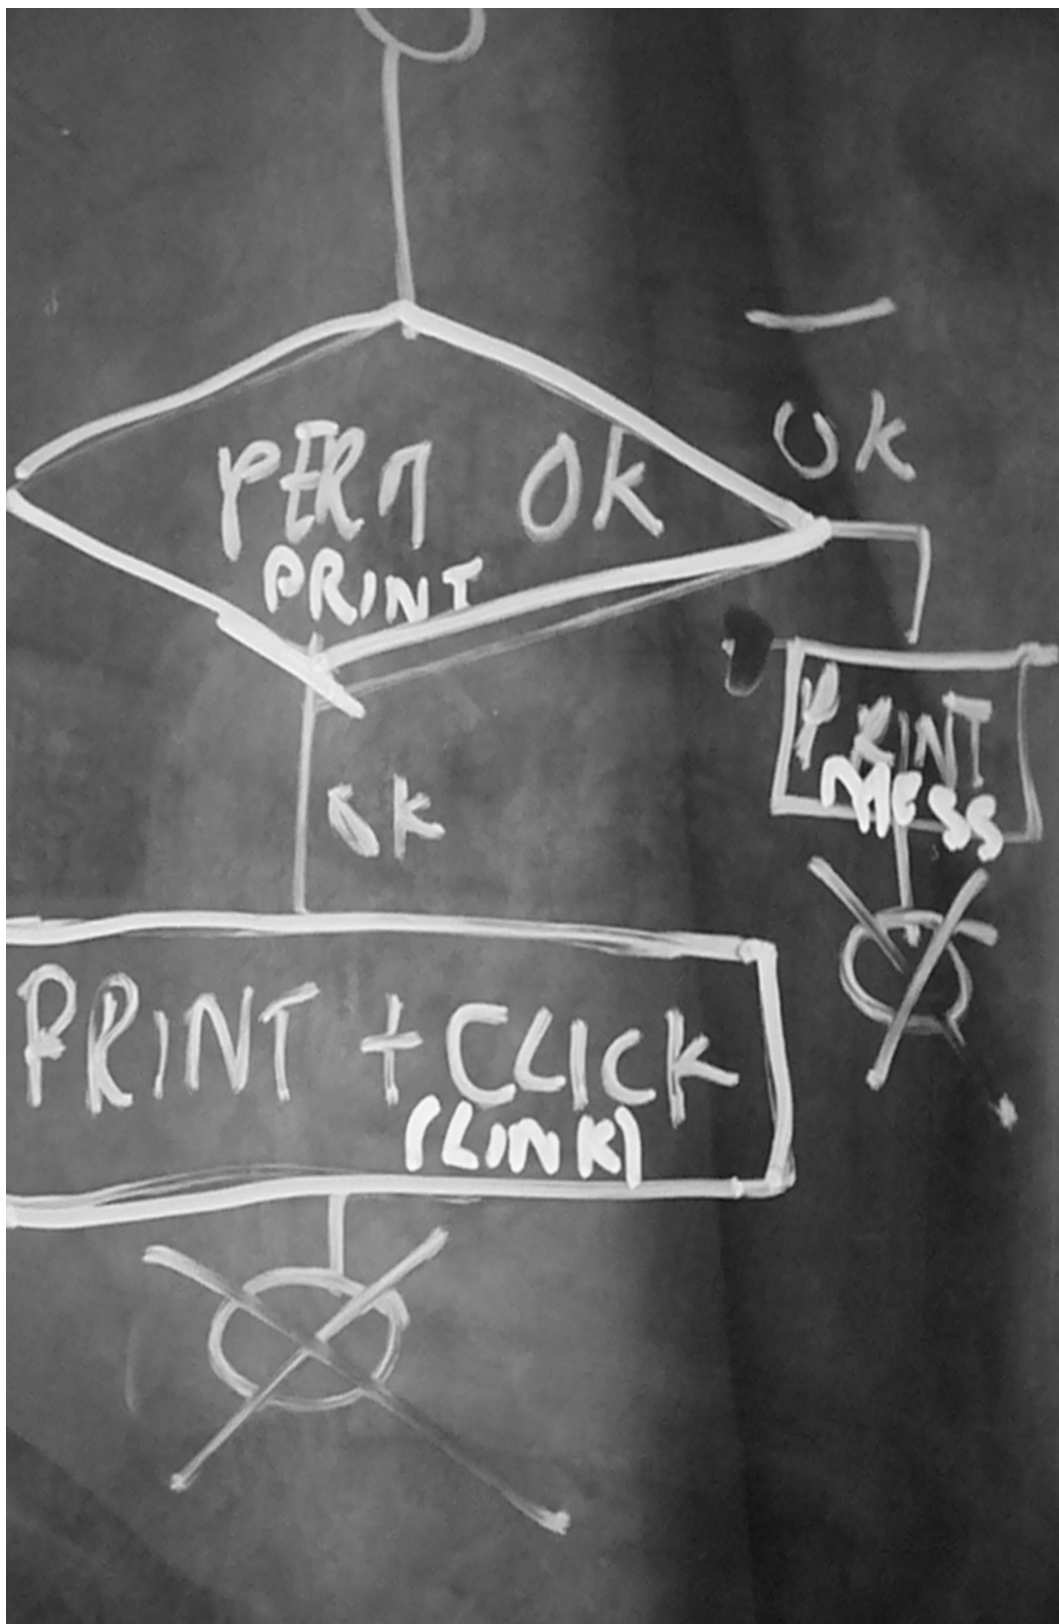 PERM OK
PRINT
OK
PRINT
MESS
OK
PRINT + CLICK
(LINK)